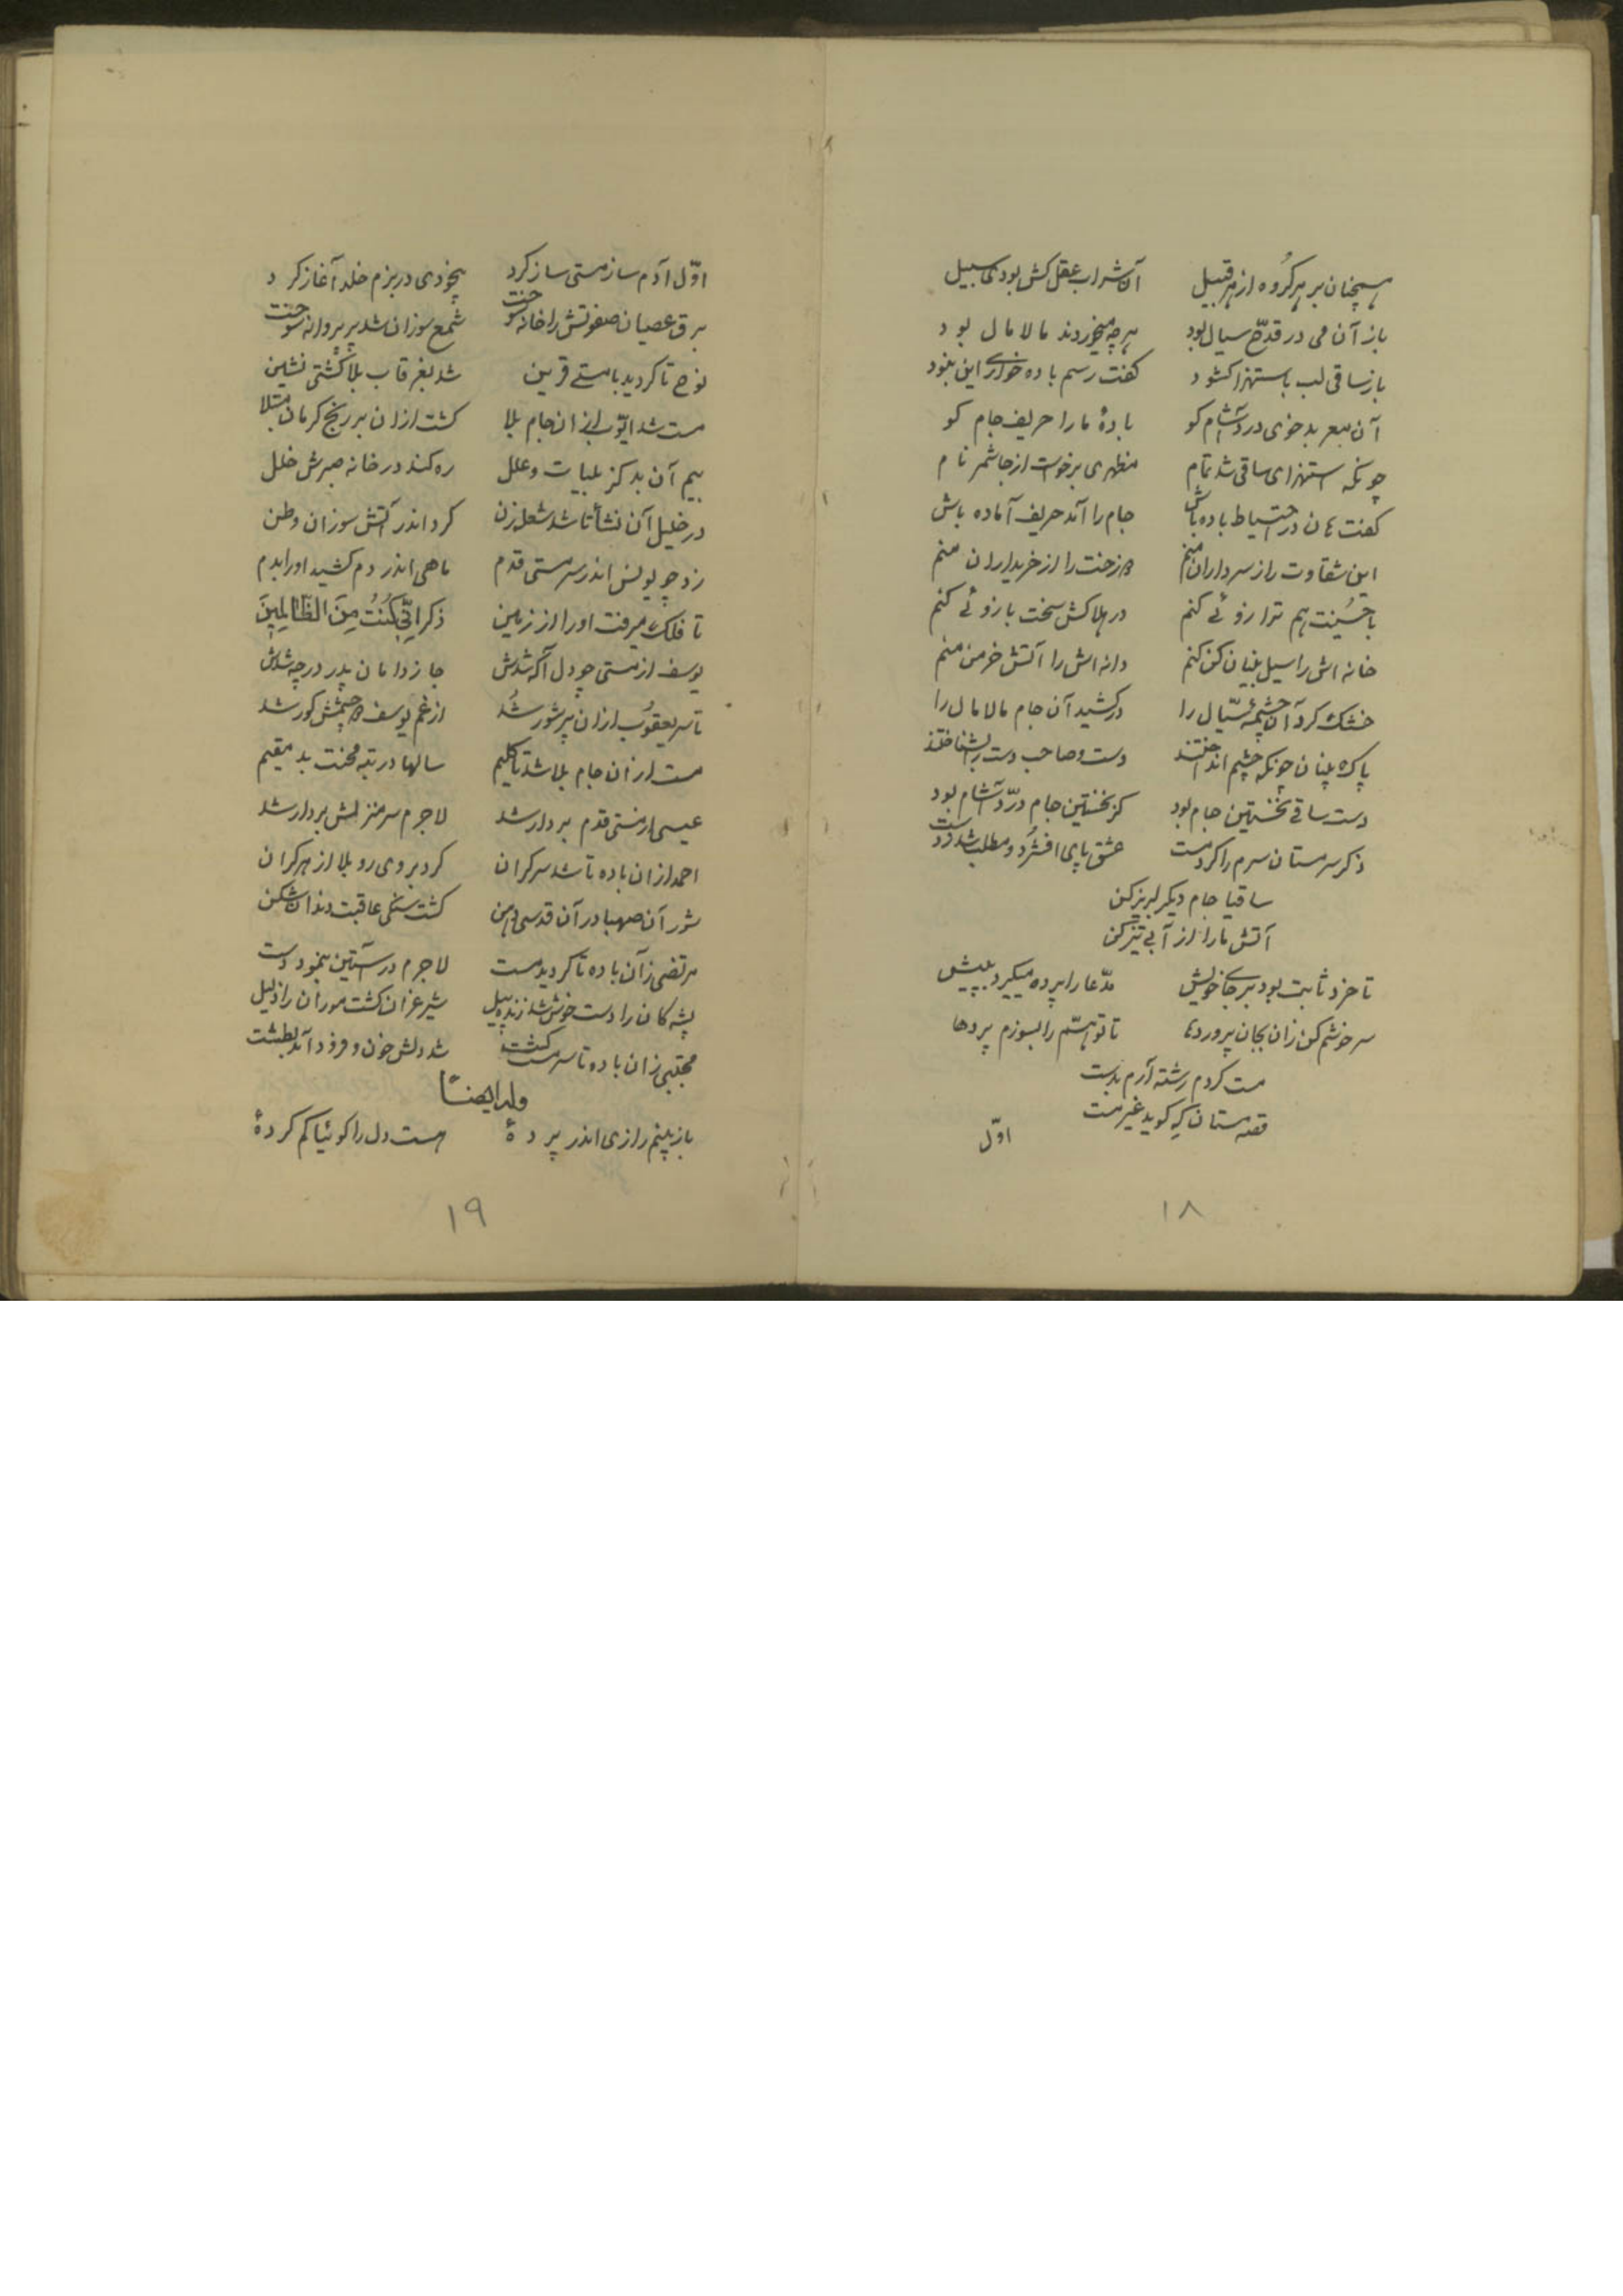 همچنان بر هر گروه از هر قبیل آن شراب عقل کش بودی سبیل
باز آن می در قدح سیال بود هر چه میخوردند مالامال بود
باز ساقی لب باستهزا گشود گفت رسم باده خواری این نبود
آن سعر بد خوی درد آشام کو بادهٔ ما را حریف جام کو
چونکه استهزای ساقی شد تمام منظری برخواست از جا شمر نام
گفت هان در احتیاط باده باش جام را آمد حریف آماده باش
این شقاوت را ز سرداران منم وزخت را از خریداران منم
با حسینت هم ترازوئی کنم در هلاکش سخت بازوئی کنم
خانه اش را سیل بنیان کن کنم دانه اش را آتش خرمن منم
خشک کرد آن چشمهٔ سیّال را درکشید آن جام مالامال را
پاک بینان چونکه چشم انداختند دست و صاحب دست را بشناختند
دست ساقی نخستین جام بود کز نخستین جام درد آشام بود
ذکر سرمستان سرم را کرد مست عشق پای افشرد و مطلب شد ز دست
ساقیا جام دیگر لبریز کن
آتش ما را از آبی تیز کن
تا خرد ثابت بود بر جای خویش مدّعا را پرده میگیرد به پیش
سرخوشم کن زان بجان پرورده‌ها تا توانم را بسوزم پرده‌ها
مست گردم رشته آرم بدست
قصه مستان که گوید غیر مست
اوّل
۱۸
اوّل آدم ساز مستی ساز کرد بیخودی در بزم خلد آغاز کرد
برق عصیان صفوتش را خانه سوخت شمع سوزان شد پر پروانه سوخت
نوح تا گردید با مستی قرین شد بغرقاب بلا کشتی نشین
مست شد ایّوب از ان جام بلا گشت ازان بر رنج کرمان مبتلا
بیم آن بد کز بلیات و علل ره کند در خانه صبرش خلل
در خلیل آن نشأ تا شد شعله زن کرد اندر آتش سوزان وطن
زد چو یونس اندر سرمستی قدم ماهی اندر دم کشید او را بدم
تا فلک میرفت او را از زمین ذکر انّی کُنتُ مِنَ الظّالمینَ
یوسف از مستی چو دل آگه شدش جا ز دامان پدر در چه شدش
تا سر یعقوب ازان پر شور شد از غم یوسف دو چشمش کور شد
مست ازان جام بلا شد تا کلیم سالها در تیه محنت بد مقیم
عیسی از مستی قدم بر دار شد لاجرم سر منزلش بر دار شد
احمد ازان باده تا شد سرگران کرد بر وی رو بلا از هر کران
شور آن صهبا در آن قدسی دهن گشت سنگی عاقبت دندان شکن
مرتضی زآن باده تا گردید مست لاجرم در آستین بنمود دست
پشه کان را دست خوش شد زنده پیل شیر غران گشت موران را ذلیل
مجتبی زان باده تا سرمست گشت شد دلش خون و فرود آمد بطشت
وله ایضاً
باز بینم رازی اندر پردهٔ هست دل را گوئیا گم کردهٔ
۱۹